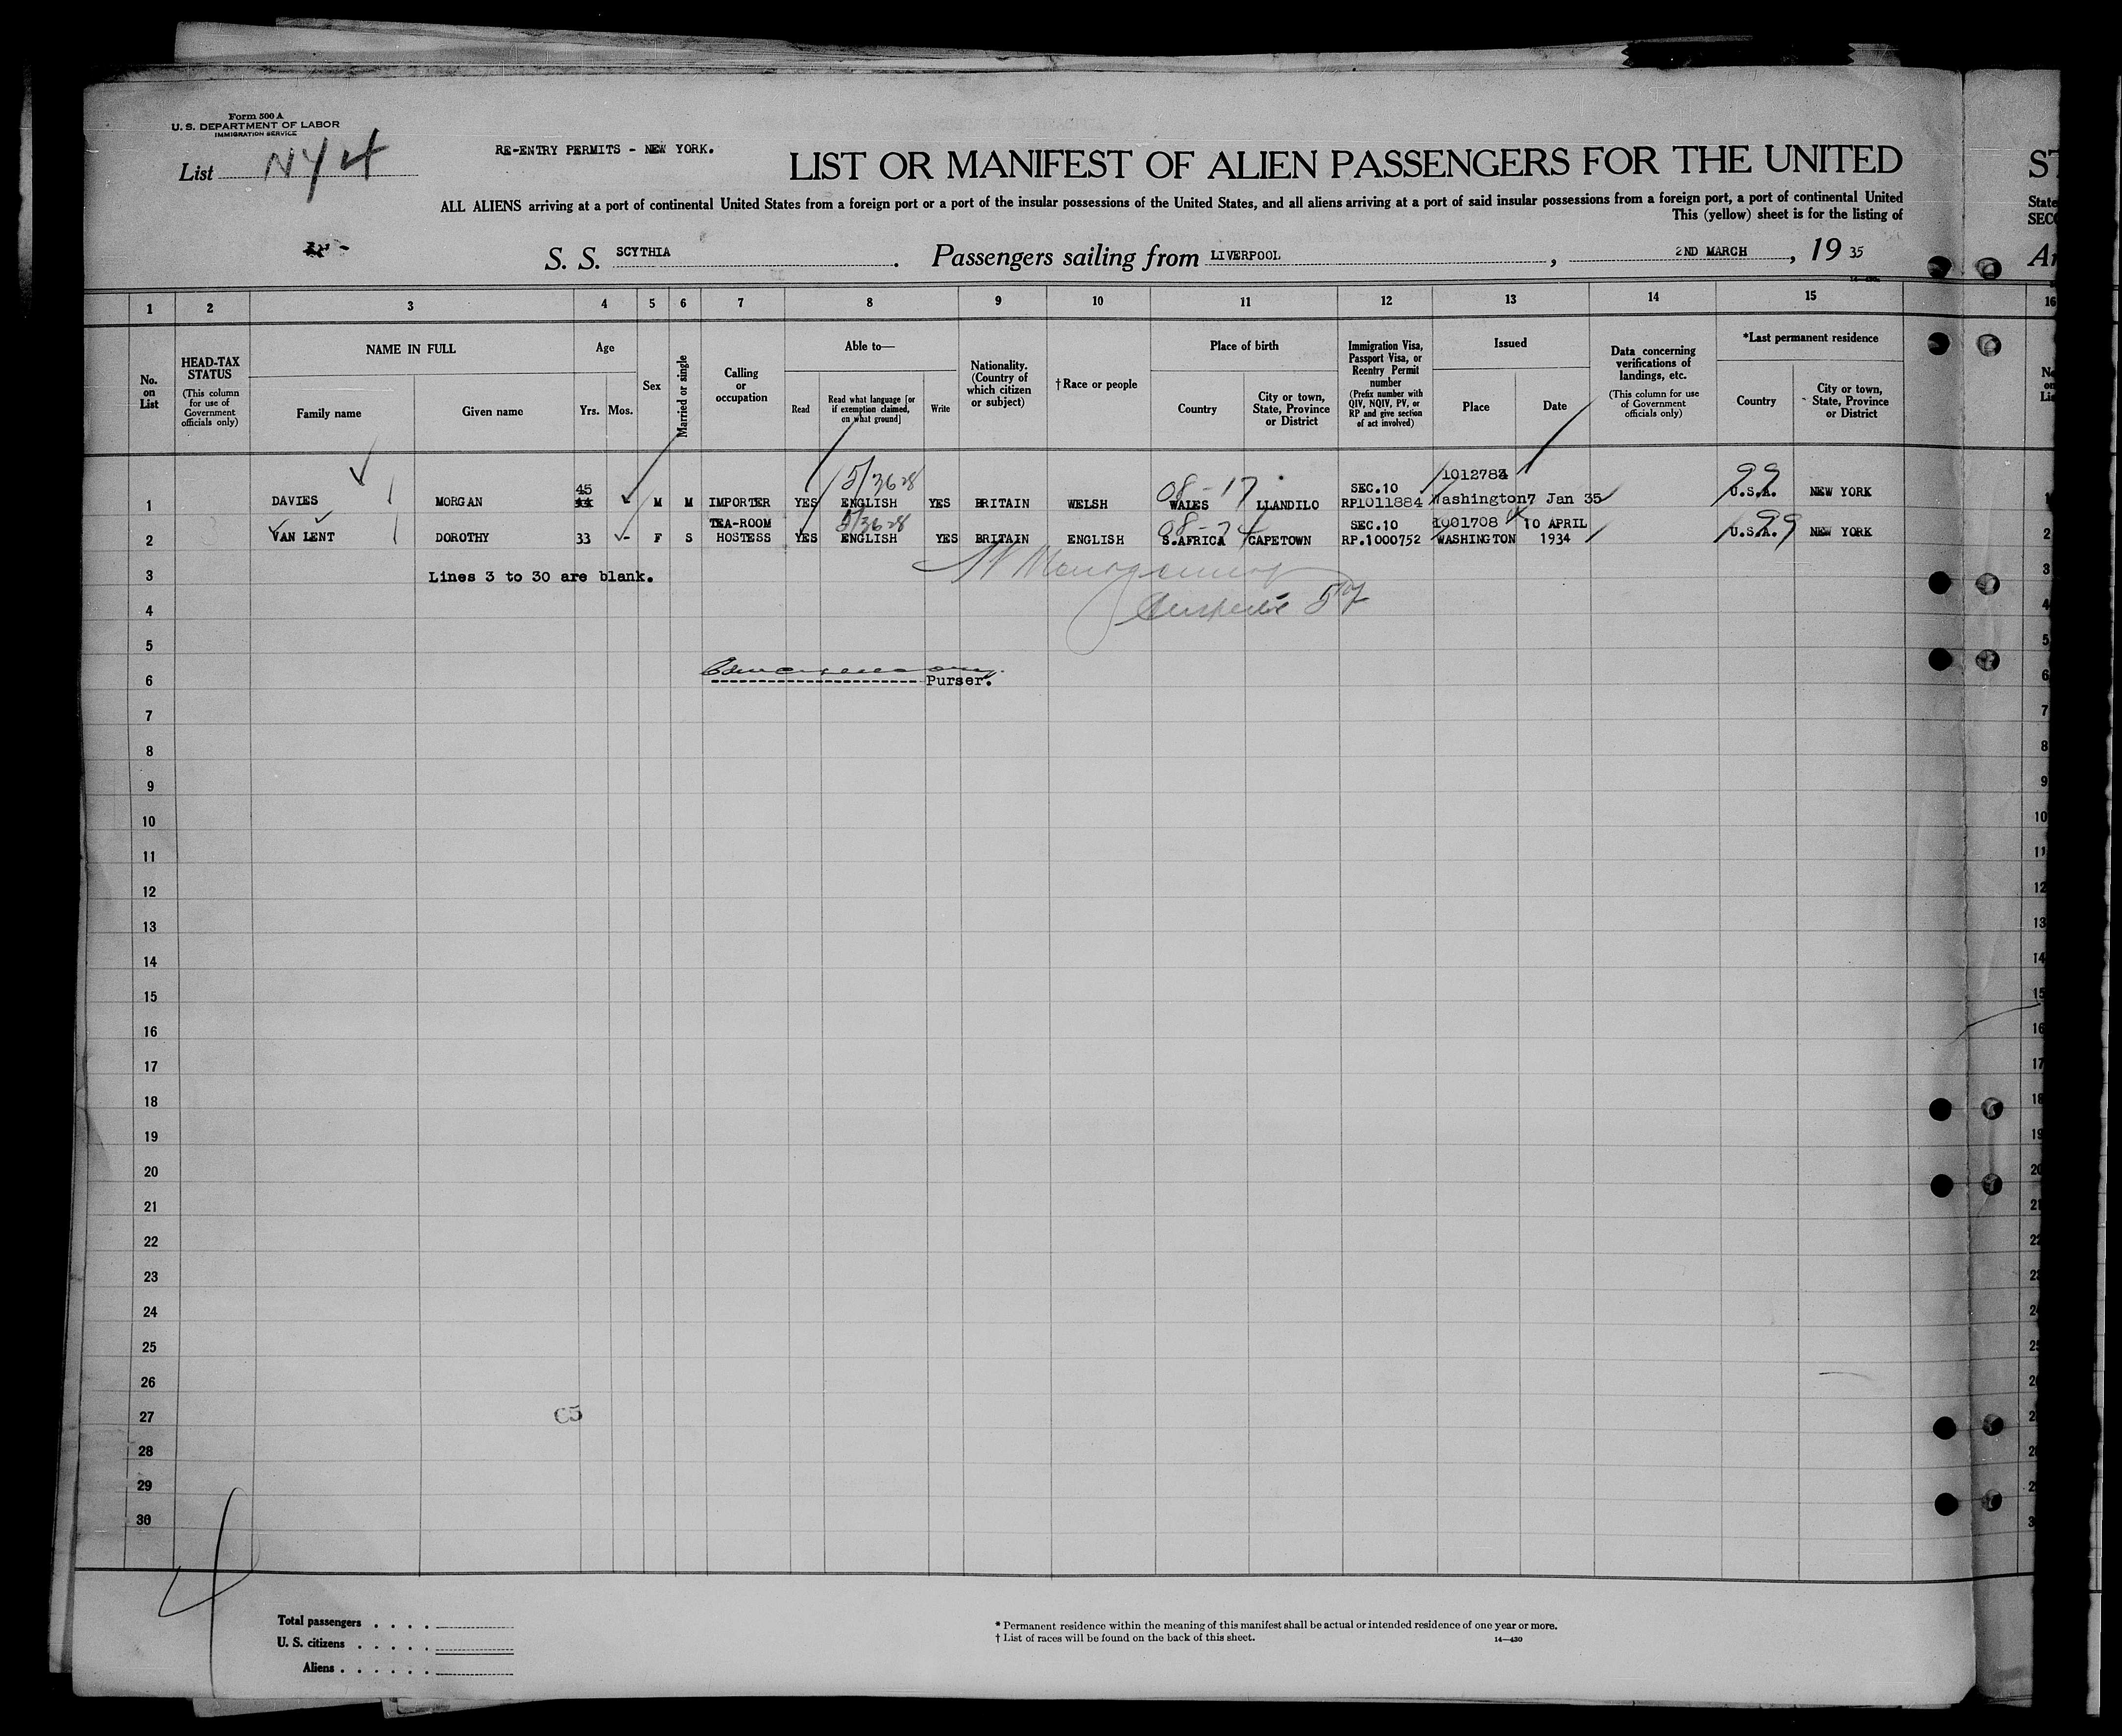 Form 500 A
U. S. DEPARTMENT OF LABOR
IMMIGRATION SERVICE
List NY 4
RE-ENTRY PERMITS - NEW YORK.
LIST OR MANIFEST OF ALIEN PASSENGERS FOR THE UNITED ST
ALL ALIENS arriving at a port of continental United States from a foreign port or a port of the insular possessions of the United States, and all aliens arriving at a port of said insular possessions from a foreign port, a port of continental United State
This (yellow) sheet is for the listing of SECO
S. S. SCYTHIA. Passengers sailing from LIVERPOOL, 2ND MARCH, 19 35 Ar
1 2 3 4 5 6 7 8 9 10 11 12 13 14 15 16
No. on List
HEAD-TAX STATUS (This column for use of Government officials only)
NAME IN FULL
Family name
Given name
Age
Yrs. Mos.
Sex
Married or single
Calling or occupation
Able to—
Read
Read what language [or if exemption claimed, on what ground]
Write
Nationality. (Country of which citizen or subject)
†Race or people
Place of birth
Country
City or town, State, Province or District
Immigration Visa, Passport Visa, or Reentry Permit number (Prefix number with QIV, NQIV, PV, or RP and give section of act involved)
Issued
Place
Date
Data concerning verifications of landings, etc. (This column for use of Government officials only)
*Last permanent residence
Country
City or town, State, Province or District
5/3628 08-17 1012783 99
1 DAVIES MORGAN 45 44 M M IMPORTER YES ENGLISH YES BRITAIN WELSH WALES LLANDILO SEC.10 RP1011884 Washington 7 Jan 35 U.S.A. NEW YORK 1
5/3628 08-24 1901708 99
2 VAN LENT DOROTHY 33 F S TEA-ROOM HOSTESS YES ENGLISH YES BRITAIN ENGLISH S.AFRICA CAPETOWN SEC.10 RP.1000752 WASHINGTON 10 APRIL 1934 U.S.A. NEW YORK 2
3 Lines 3 to 30 are blank. 3
4 4
5 5
6 Purser. 6
7 7
8 8
9 9
10 10
11 11
12 12
13 13
14 14
15 15
16 16
17 17
18 18
19 19
20 20
21 21
22 22
23
24
25
26
27 C5
28
29
30
Total passengers . . . .
U. S. citizens . . . . .
Aliens . . . . . .
* Permanent residence within the meaning of this manifest shall be actual or intended residence of one year or more.
† List of races will be found on the back of this sheet. 14—430